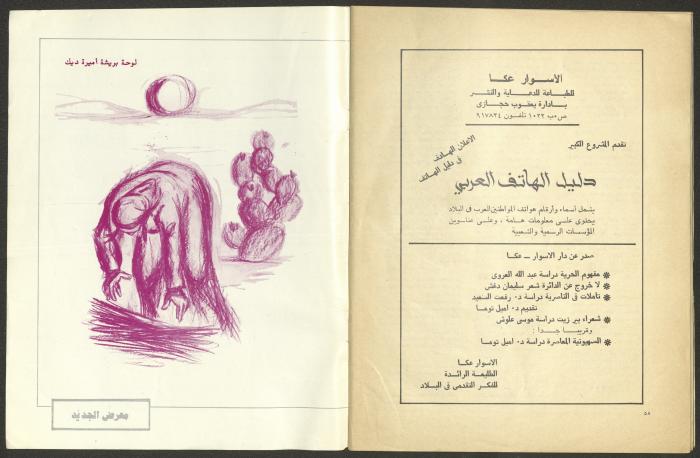 الاسوار عكا
للطباعة للدعاية والنشر
بادارة يعقوب حجازي
ص٠ب ١٠٢٢ تلفون ٩١٧٨٢٤
نقدم المشروع الكبير
الاعلان الهاتف
في دليل الهاتف
دليل الهاتف العربي
يشمل اسماء وأرقام هواتف المواطنين العرب في البلاد
يحتوي على معلومات هامة ، وعلى عناوين
المؤسسات الرسمية والشعبية
صدر عن دار الاسوار ــ عكا
❋ مفهوم الحرية دراسة عبد الله العروي
❋ لا خروج عن الدائرة شعر سليمان دغش
❋ تأملات في الناصرية دراسة د٠ رفعت السعيد
تقديم د٠ اميل توما
❋ شعراء بير زيت دراسة موسى علوش
وقريبا جدا :
❋ الصهيونية المعاصرة دراسة د٠ اميل توما
الاسوار عكا
الطليعة الرائدة
للفكر التقدمي في البلاد
٥٨
لوحة بريشة اميرة ديك
معرض الجديد